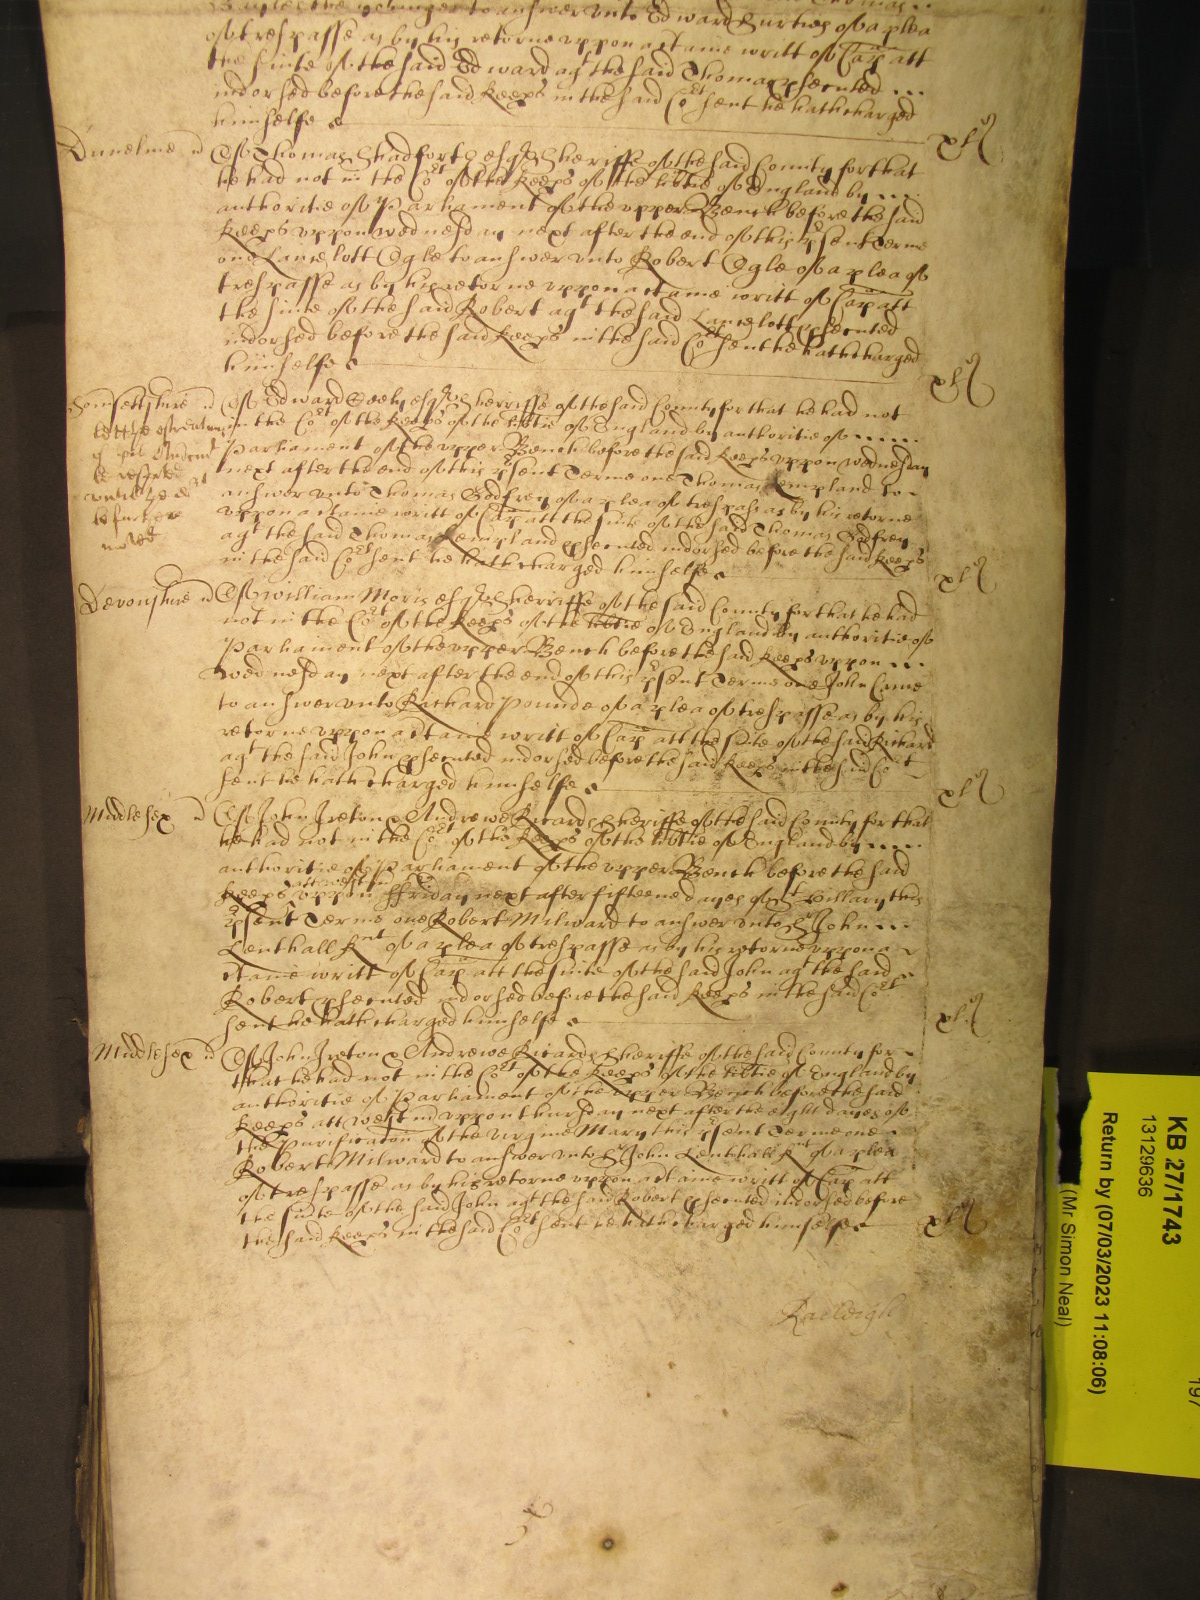 Bayles the younger to answer unto Edward Curties of a plea
of trespasse as by his retorne uppon a c'taine writt of Cap' att
the suite of the said Edward agt the said Thomas p'secuted ...
indorsed before the said Keep's in the said Cort sent he hath charged
himselfe
xls
Dunelme ss Of Thomas Shadforth esqr Sheriffe of the said County for that
he had not in the Cort of the Keep's of the lib'tie of England by ...
authoritie of Parliament of the upper Bench before the said
Keep's uppon wednesday next after the end of this p'sent Terme
one Lancelott Ogle to answer unto Robert Ogle of a plea of
trespasse as by his retorne uppon a c'taine writt of Cap' att
the suite of the said Robert agt the said Lancelott p'secuted
indorsed before the said Keep's in the said Cort sent he hath charged
himselfe
xls
Som'settshire ss Of Edward Ceely esqr Sherriffe of the said County for that he had not
in the Cort of the Keep's of the lib'tie of England by authoritie of .....
Parliament of the upper Bench before the said Keep's uppon wednesday
next after the end of this p'sent Terme one Thomas Kempland to
answer unto Thomas Godfrey of a plea of trespas as by his retorne
uppon a c'taine writt of Cap' att the suite of the said Thomas Godfrey
agt the said Thomas Kempland p'secuted indorsed before the said Keep's
in the said Cort sent he hath charged himselfe
xls
let the estreating
be
be further
moved
Devonshire ss Of William Moris esqr Sherriffe of the said County for that he had
not in the Cort of the Keep's of the lib'tie of England by authoritie of
Parliament of the upper Bench before the said Keep's uppon ...
wednesday next after the end of this p'sent Terme one John Came
to answer unto Richard Pounde of a plea of trespasse as by his
retorne uppon a c'taine writt of Cap' att the suite of the said Richard
agt the said John p'secuted indorsed before the said Keep's in the said Cort
sent he hath charged himselfe
xls
Middlesex ss Of John Ireton & Andrewe Ricards Sheriffe of the said County for that
he had not in the Cort of the Keep's of the lib'tie of England by ....
authoritie of Parliament of the upper Bench before the said
Keep's att westm' uppon ffriday next after fifteene dayes of St Hillary this
p'sent Terme one Robert Milward to answer unto Sr John ...
Lenthall Knt of a plea of trespasse as by his retorne uppon a
c'taine writt of Cap' att the suite of the said John agt the said
Robert p'secuted indorsed before the said Keep's in the said Cort
sent he hath charged himselfe
xls
Middlesex ss Of John Ireton & Andrewe Ricards Sheriffe of the said County for
that he had not in the Cort of the Keep's of the lib'tie of England by
authoritie of Parliament of the upper Bench before the said
Keep's att westm' uppon thursday next after the eight dayes of
the Purificac'on of the virgine Mary this p'sent Terme one
Robert Milward to answer unto Sr John Lenthall Knt of a plea
of trespasse as by his retorne uppon a c'taine writt of Cap' att
the suite of the said John agt the said Robert p'secuted indorsed before
the said Keep's in the said Cort sent he hath charged himselfe
xls
Raeleigh
KB 27/1743
13129636
Return by (07/03/2023 11:08:06)
(Mr Simon Neal)
197